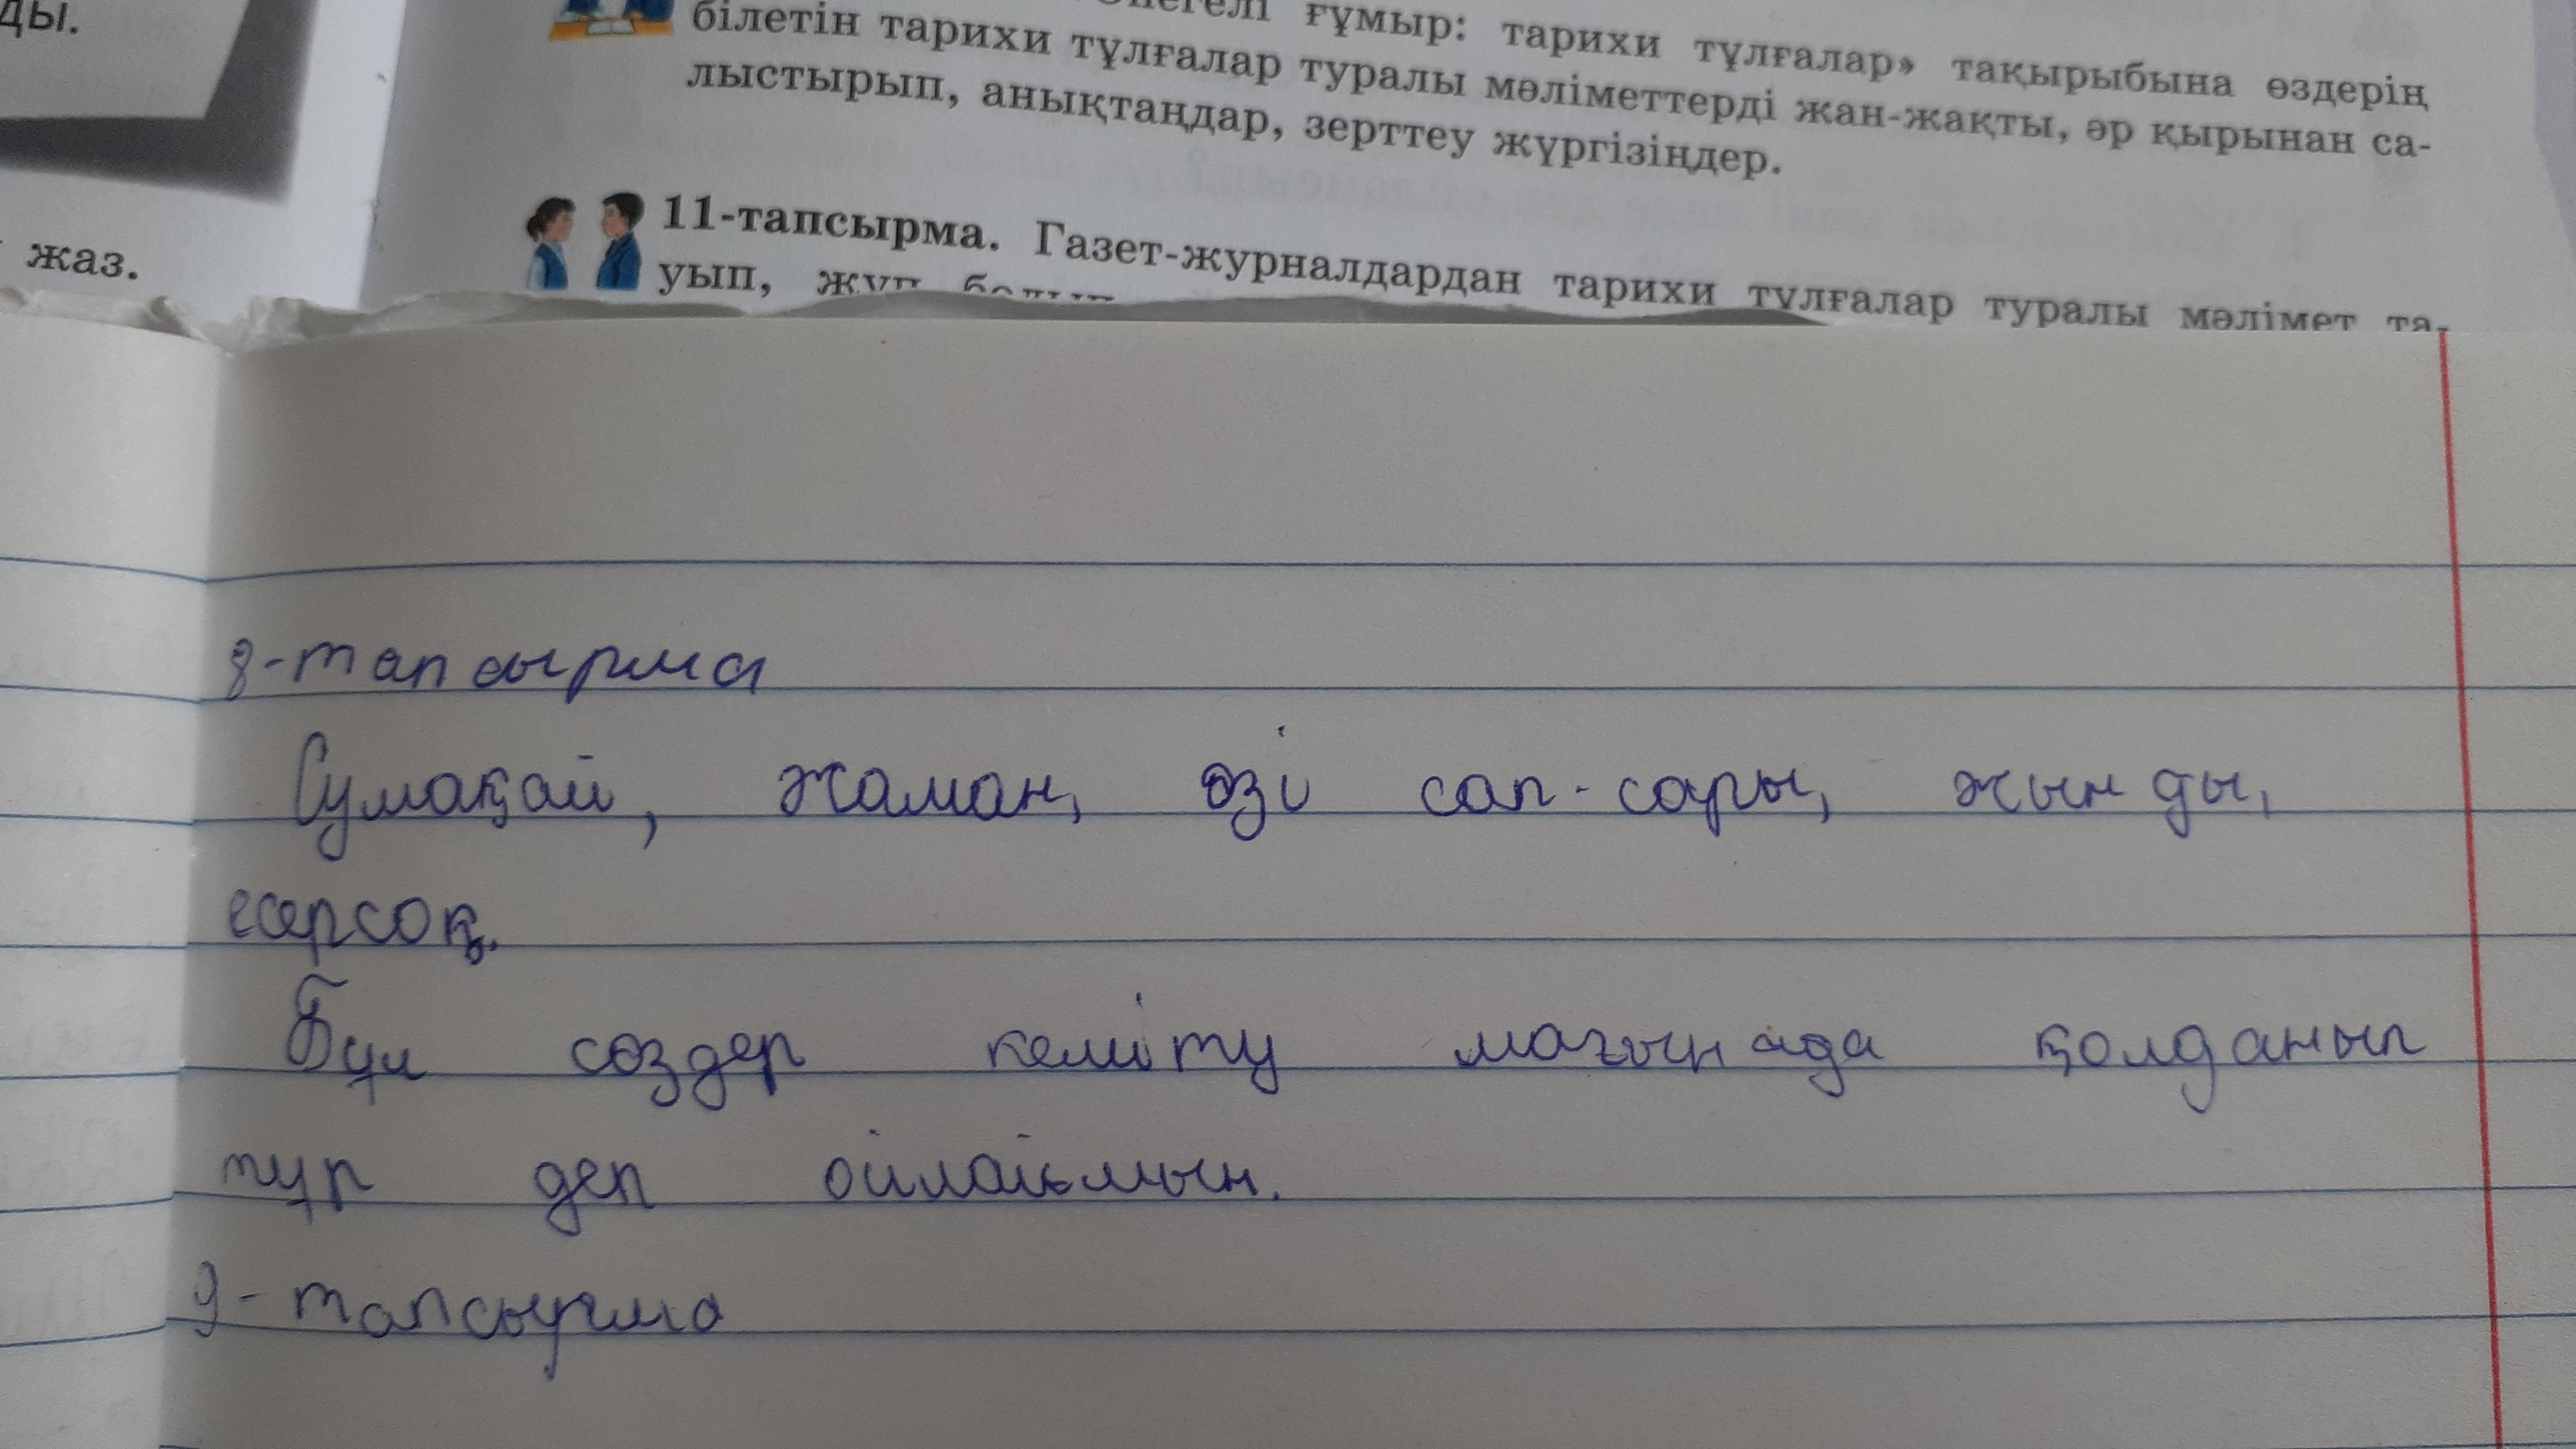 ды.
жаз.
ғұмыр: тарихи тұлғалар» тақырыбына өздерің
білетін тарихи тұлғалар туралы мәліметтерді жан-жақты, әр қырынан са-
лыстырып, анықтаңдар, зерттеу жүргізіңдер.
11-тапсырма. Газет-журналдардан тарихи тұлғалар туралы мәлімет та-
уып, жұп болып
8-тапсырма
Сумақай, жаман, өзі сап-сары, жынды,
есерсоқ.
Бұл сөздер кеміту мағынада қолданып
тұр деп ойлаймын.
9-тапсырма